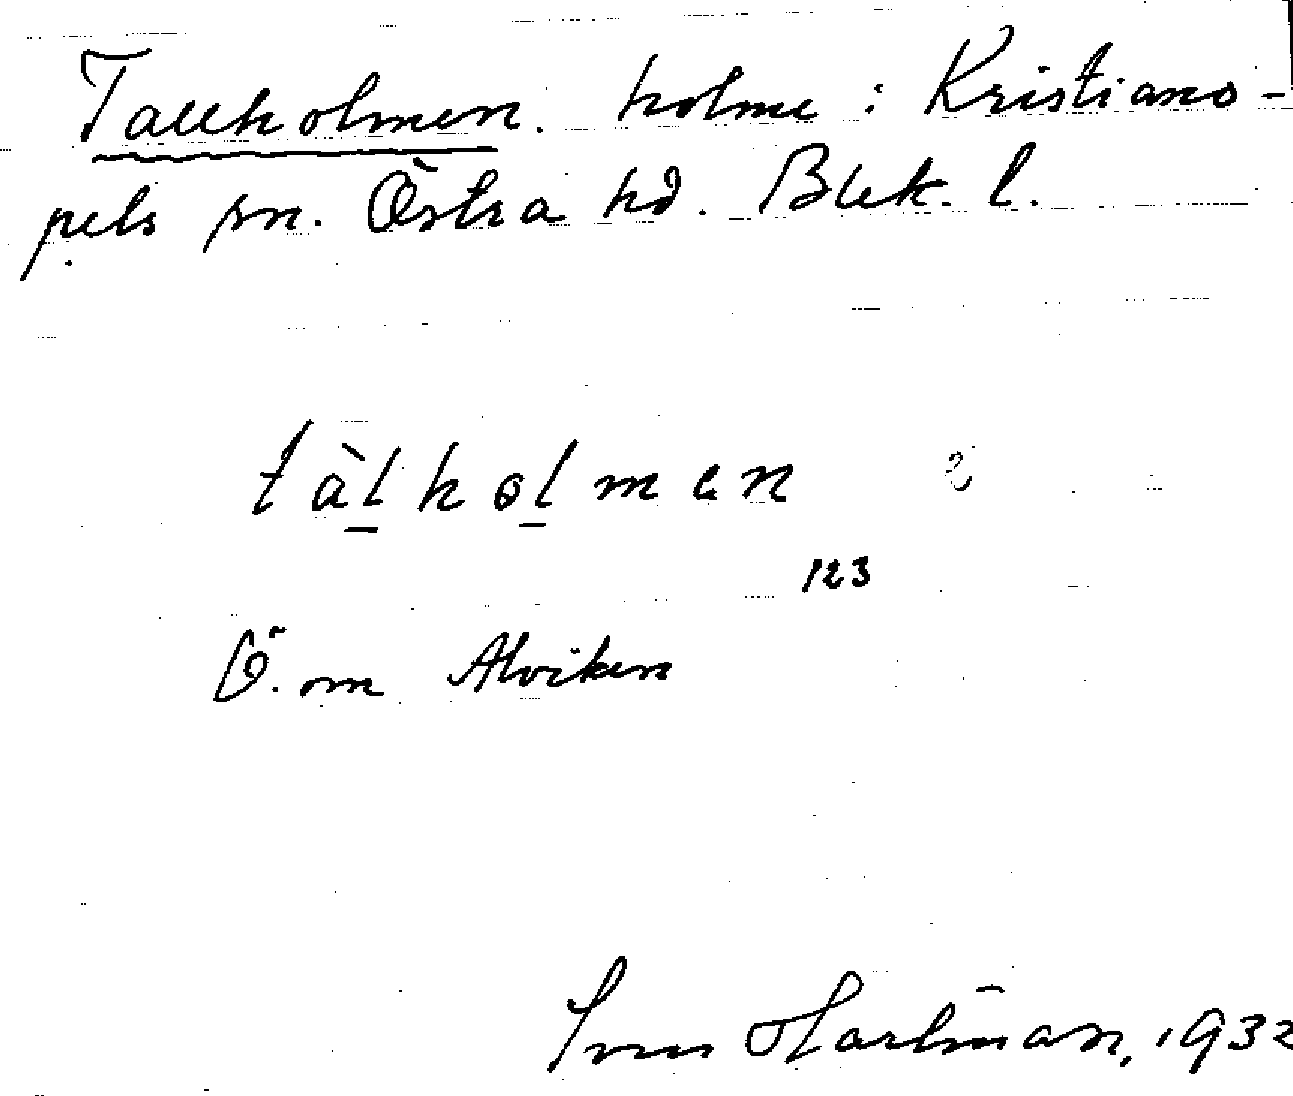 Tallholmen. holme i Kristiano-
pels sn. Östra hd. Blek. l.
tàlholmen
123
Ö. om Alviken
Sven Hartman, 1932